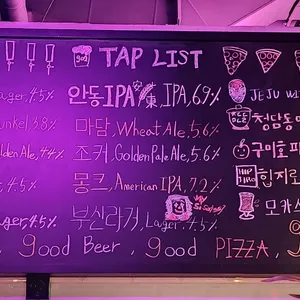 TAP LIST
ager, 4.5% 안동IPA, IPA, 6.9% JEJU WI
unkel, 3.8% 마담, Wheat Ale, 5.6% 청담동
olden Ale, 4.4% 조커, Golden Pale Ale, 5.6% 구미호
4.5% 몽크, American IPA, 7.2% 힙지로
ager, 4.5% 부산라거, Lager, 4.5% 모카스
good Beer, good PIZZA,